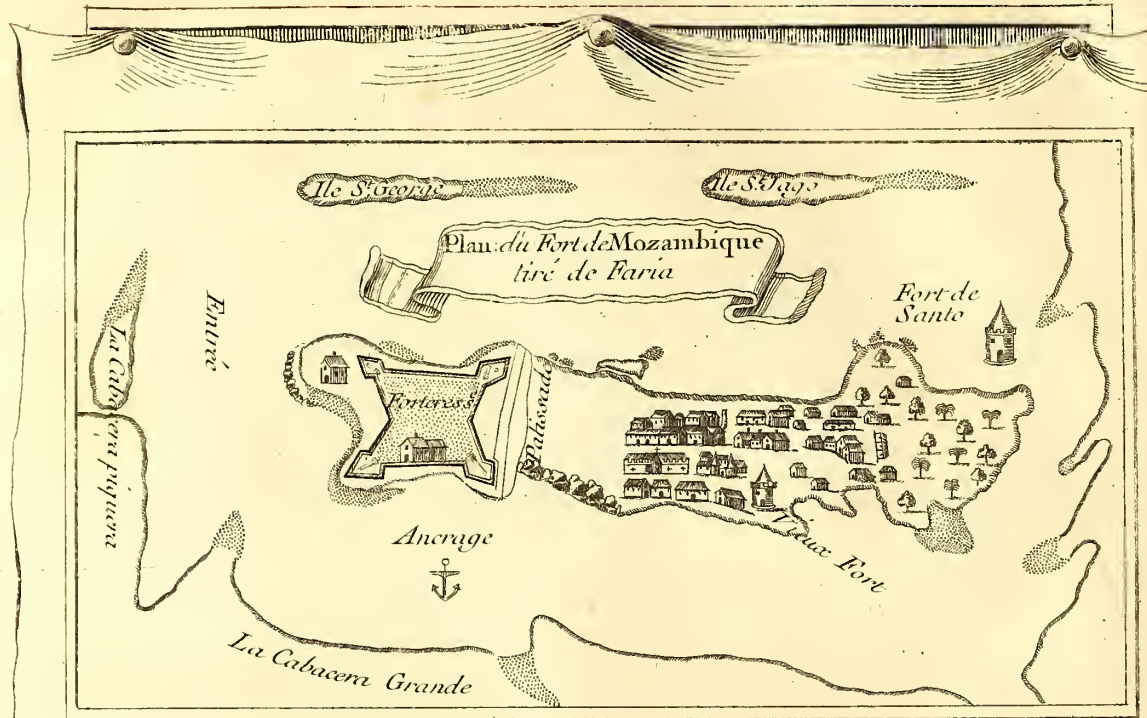 Ile St. George
Ile St. Jago
Plan: du Fort de Mozambique
tiré de Faria
Fort de
Santo
Entré
La Cabacera piquera
Forteresse
Palissade
Ancrage
Vieux Fort
La Cabacera Grande